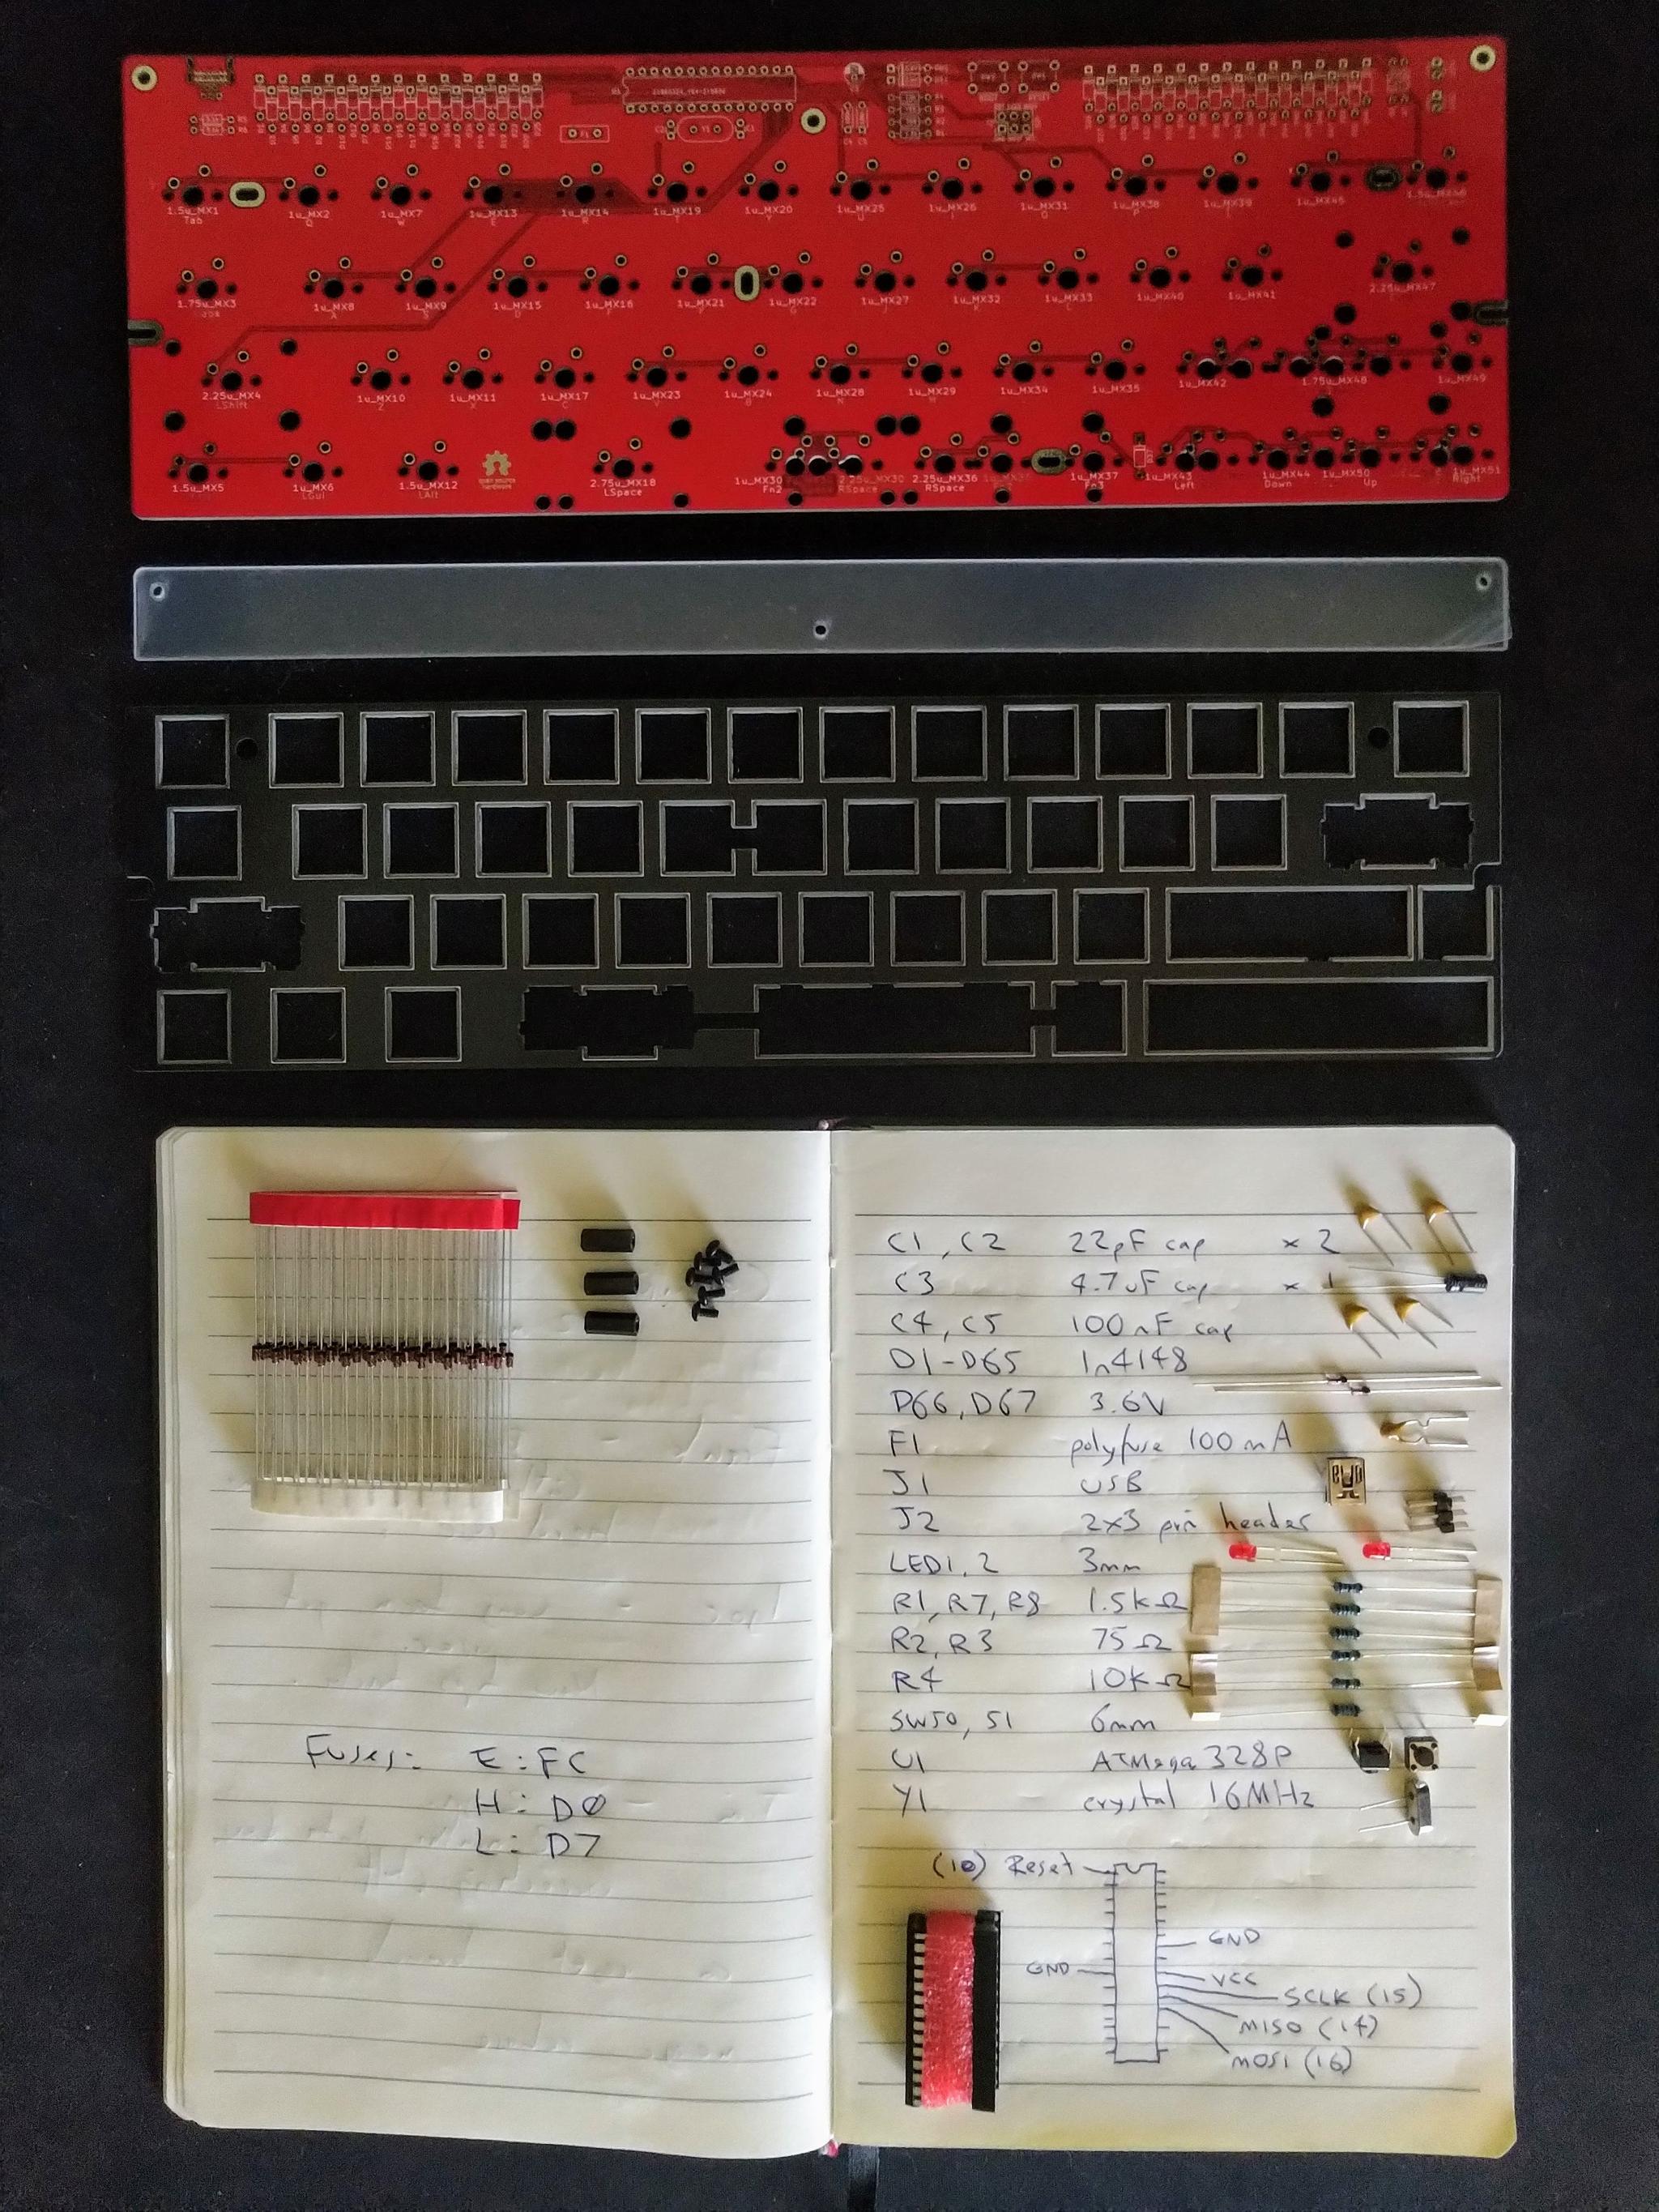 1.5u_MX1 1u_MX2 1u_MX7 1u_MX13 1u_MX14 1u_MX19 1u_MX20 1u_MX25 1u_MX26 1u_MX31 1u_MX38 1u_MX39 1u_MX46
Tab Q W E R
1.75u_MX3 1u_MX8 1u_MX9 1u_MX15 1u_MX16 1u_MX21 1u_MX22 1u_MX27 1u_MX32 1u_MX33 1u_MX40 1u_MX41 2.25u_MX47
2.25u_MX4 1u_MX10 1u_MX11 1u_MX17 1u_MX23 1u_MX24 1u_MX28 1u_MX29 1u_MX34 1u_MX35 1u_MX42 1.75u_MX48 1u_MX49
LShift Z X C V B N M
1.5u_MX5 1u_MX6 1.5u_MX12 2.75u_MX18 1u_MX30 2.25u_MX30 2.25u_MX36 1u_MX37 1u_MX43 1u_MX44 1u_MX50 1u_MX51
LGui LAlt LSpace Fn2 RSpace RSpace Fn3 Left Down Up Right
C1, C2 22pF cap x 2
C3 4.7uF cap x 1
C4, C5 100nF cap
D1-D65 1n4148
D66, D67 3.6V
F1 polyfuse 100mA
J1 USB
J2 2x3 pin header
LED1, 2 3mm
R1, R7, R8 1.5kΩ
R2, R3 75Ω
R4 10kΩ
SW50, 51 6mm
U1 ATMega 328P
Y1 crystal 16MHz
Fuses: E: FC
H: D0
L: D7
(10) Reset
GND
GND
VCC
SCLK (15)
MISO (14)
MOSI (16)